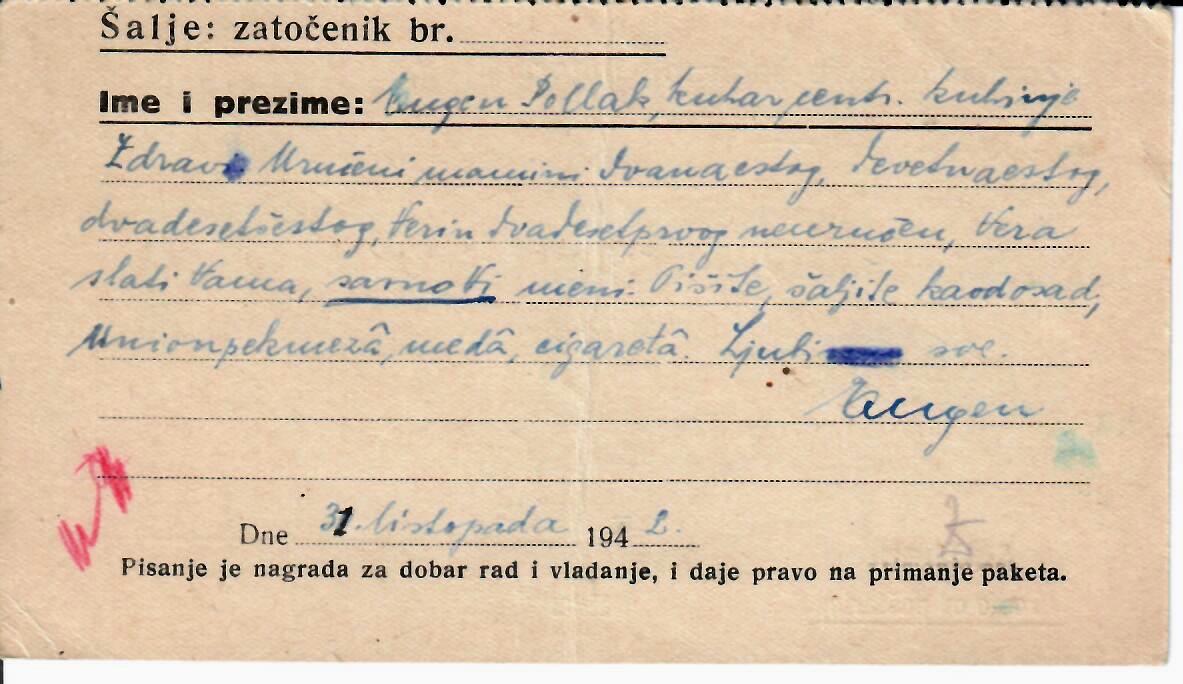 Šalje: zatočenik br.
Ime i prezime: Eugen Pollak, kuhar centr. kuhinje
Zdrav. Uručeni mamini dvanaestog, devetnaestog,
dvadesetšestog, Verin dvadesetprvog neuručen, Vera
slati Vama, samo Vi meni. Pišite, šaljite kaodosad,
Unionpekmezâ, medâ, cigaretâ. Ljubi sve.
Eugen
Dne 31. listopada 1942.
Pisanje je nagrada za dobar rad i vladanje, i daje pravo na primanje paketa.